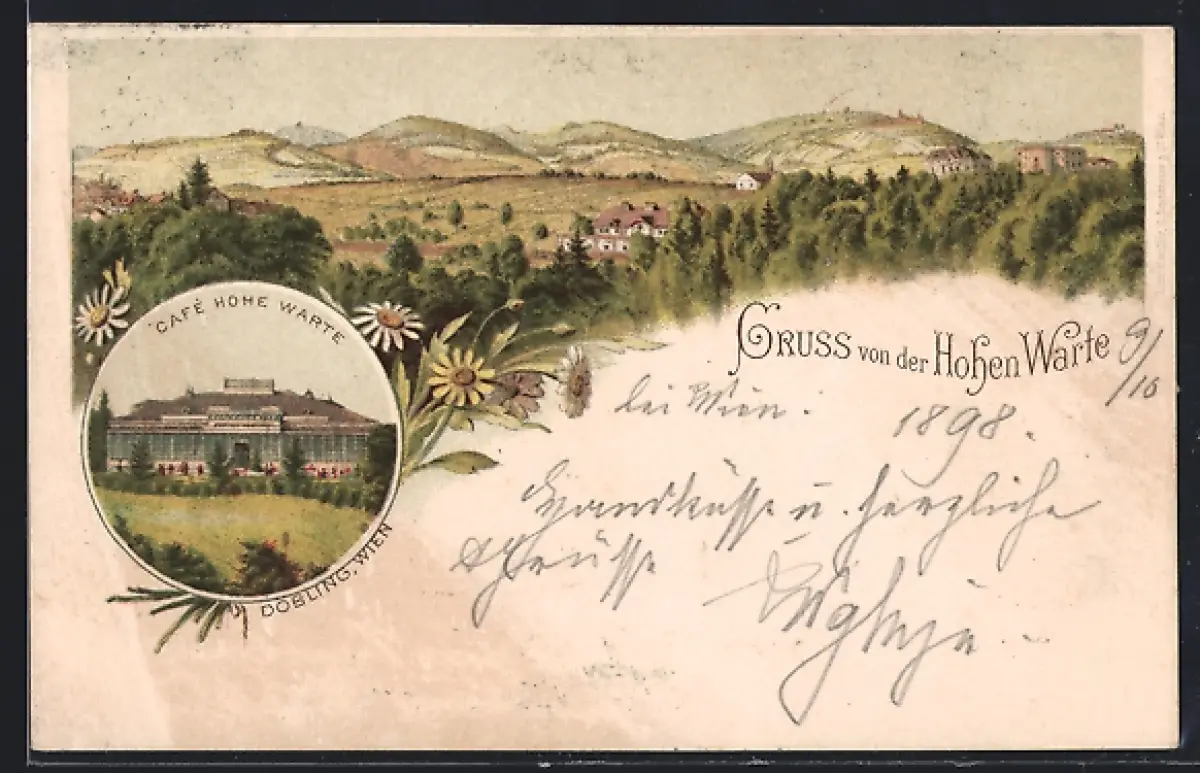 CAFÉ HOHE WARTE
DÖBLING, WIEN
GRUSS von der Hohen Warte
9/10
bei Wien.
1898.
Handküsse u. herzliche
Grüsse